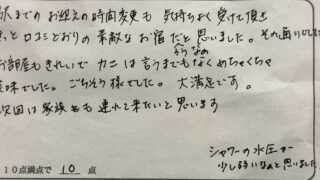 までの お迎えの時間変更も 気持ちよく 受けて頂き
と口コミどおりの 素敵な お宿 だと 思いました。その通りでした
お部屋もきれいで カニは 言うまでもなくめちゃくちゃ
美味でした。ごちそう様でした。大満足です。
次回は家族も 連れて来たいと思います
10点満点で 10 点
シャワーの水圧が
少し弱いなぁと思いました